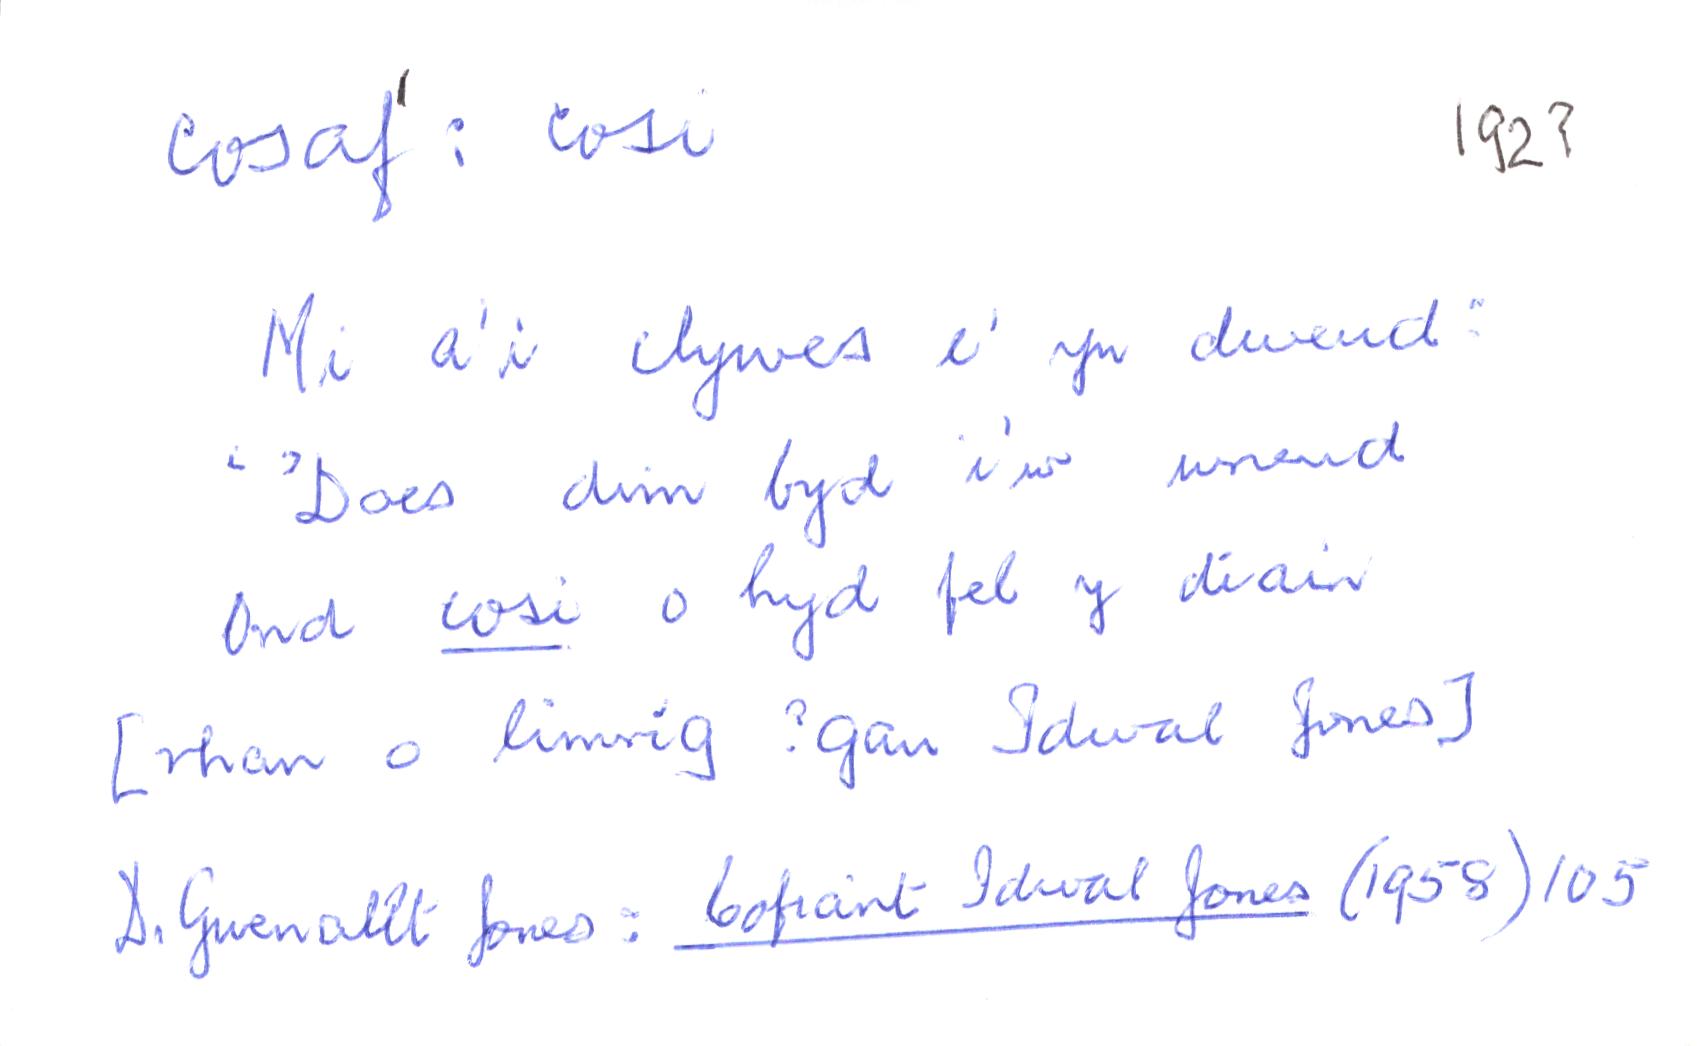 cosaf¹: cosi 192?
Mi a'i clywes e' yn dweud:
"'Does dim byd i'w wneud
Ond cosi o hyd fel y diain
[rhan o limrig ?gan Idwal Jones]
D. Gwenallt Jones: Cofiant Idwal Jones (1958) 105